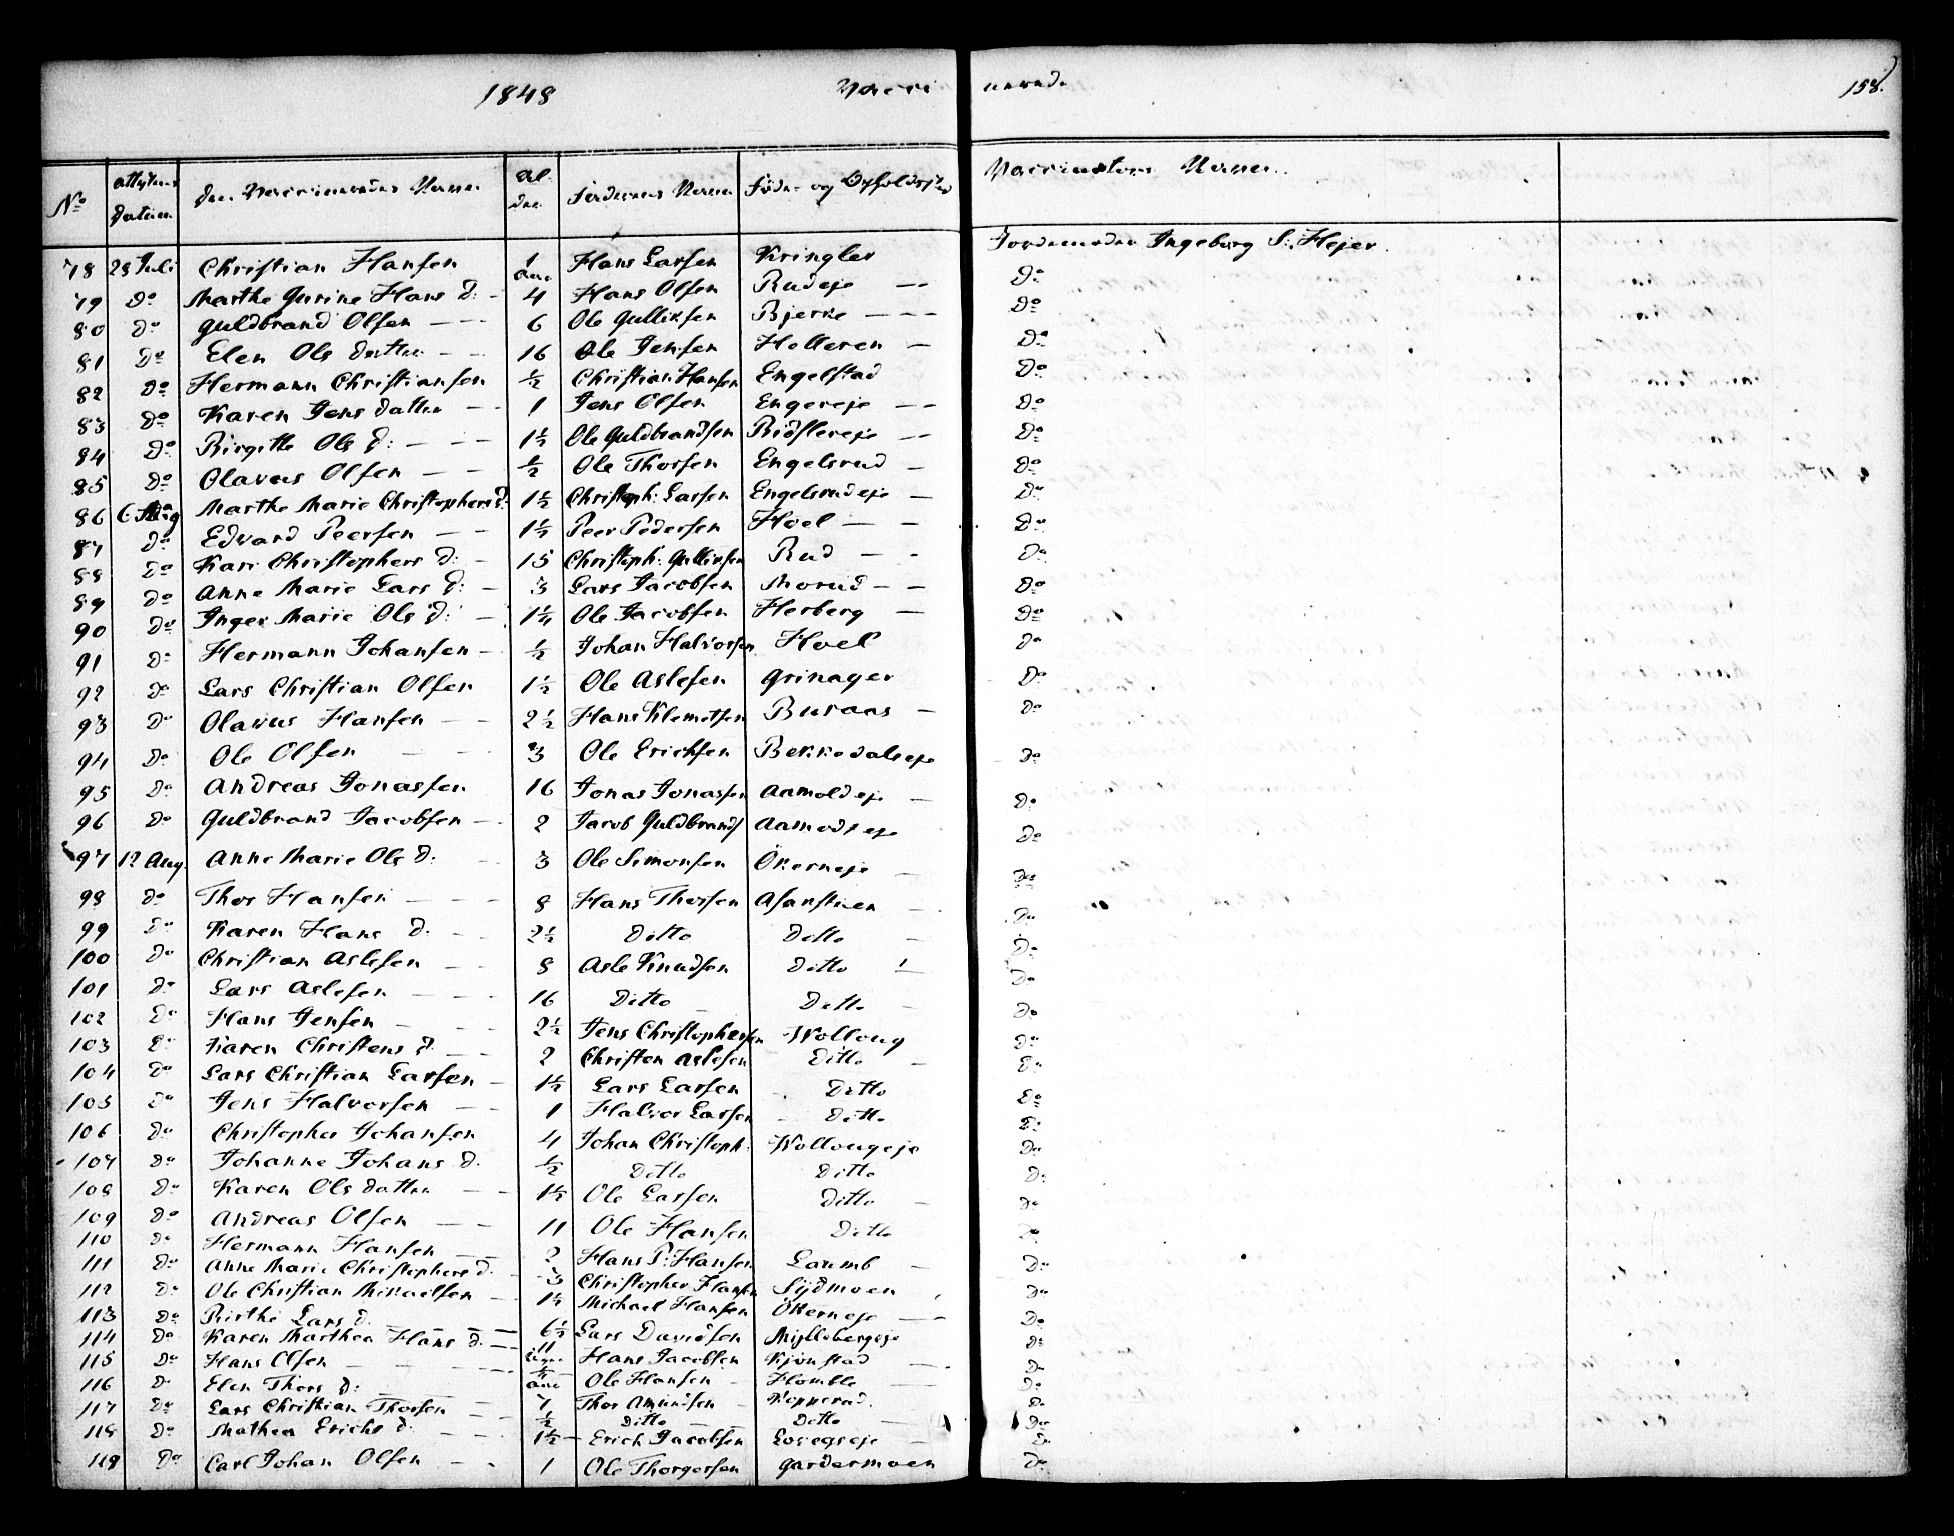 1848 Vacci nerede 158.
No Attestens Datum Den Vaccineredes Navne Al- der Forældrenes Navne Føde- og Opholdssted Vaccinators Navne
78 28 Juli Christian Hansen 1 Aar Hans Larsen Kringler Jordemoder Ingeborg S. Hejer.
79 Do Marthe Gurine Hans D: - 4 Hans Olsen Rudeje -- Do
80 Do Guldbrand Olsen --- 6 Ole Gulliksen Bjerke --- Do
81 Do Elen Ols Datter -- 16 Ole Jensen Holleren - Do
82 Do Hermann Christiansen ½ Christian Hansen Engelstad Do
83 Do Karen Jens Datter -- 1 Jens Olsen Engereje -- Do
84 Do Birgitte Ols D: --- 1½ Ole Guldbrandsen Ridslereje -- Do
85 Do Olavus Olsen -- ½ Ole Thorsen Engelsrud - Do
86 6 Aug Marthe Marie Christophers D: 1½ Christoph: Larsen Engelsrudeje - Do
87 Do Edvard Peersen -- 1½ Peer Pedersen Hoel -- Do
88 Do Kari Christophers D: - 15 Christoph: Gulliksen Rud -- Do
89 Do Anne Marie Lars D: - 3 Lars Jacobsen Morud -- Do
90 Do Inger Marie Ols D: - 1¼ Ole Jacobsen Herberg - Do
91 Do Hermann Johansen - ½ Johan Halvorsen Hoel Do
92 Do Lars Christian Olsen 1½ Ole Aslesen Grinager Do
93 Do Olavus Hansen -- 2½ Hans Klemetsen Buraas - Do
94 Do Ole Olsen -- 3 Ole Erichsen Bekkedalseje Do
95 Do Andreas Jonassen 16 Jonas Jonassen Aamoldeje - Do
96 Do Guldbrand Jacobsen -- 2 Jacob Guldbrands Aamodseje Do
97 12 Aug. Anne Marie Ols D: - 3 Ole Simonsen Økerneje - Do
98 Do Thor Hansen --- 8 Hans Thorsen Asanstuen - Do
99 Do Karen Hans D: -- 2½ Ditto Ditto - Do
100 Do Christian Aslesen -- 8 Asle Knudsen Ditto - Do
101 Do Lars Aslesen -- 16 Ditto Ditto - Do
102 Do Hans Jensen --- 2½ Jens Christophersen Wolloug Do
103 Do Karen Christens D. -- 2 Christen Aslesen Ditto - Do
104 Do Lars Christian Larsen - 1½ Lars Larsen Ditto Do
105 Do Jens Halvorsen -- 1 Halvor Larsen Ditto Do
106 Do Christopher Johansen 4 Johan Christoph: Wollougeje Do
107 Do Johanne Johans D. ½ Ditto Ditto Do
108 Do Karen Ols Datter -- 1½ Ole Larsen Ditto - Do
109 Do Andreas Olsen -- 11 Ole Hansen Ditto Do
110 Do Hermann Hansen -- 2 Hans P: Hansen Laumb - Do
111 Do Anne Marie Christophers D. - 3 Christopher Hansen Sydmoen Do
112 Do Ole Christian Mikaelsen - 1½ Michael Hansen Økerneje -- Do
113 Do Birthe Lars D. --- 6½ Lars Davidsen Myllebergeje Do
114 Do Karen Marthea Hans D. -- 11 Hans Jacobsen Kjonstad -- Do
115 Do Hans Olsen --- ½ Aar Ole Hansen - Homble -- Do
116 Do Elen Thors D: -- 7 Thor Amundsen Kopperud. Do
117 Do Lars Christian Thorsen -- ½ Ditto -- Ditto - Do
118 Do Mathea Erichs D. -- 1½ - Erich Jacobsen Lovegseje - Do
119 Do Carl Johan Olsen -- 1 Ole Thorgersen Gardermoen Do